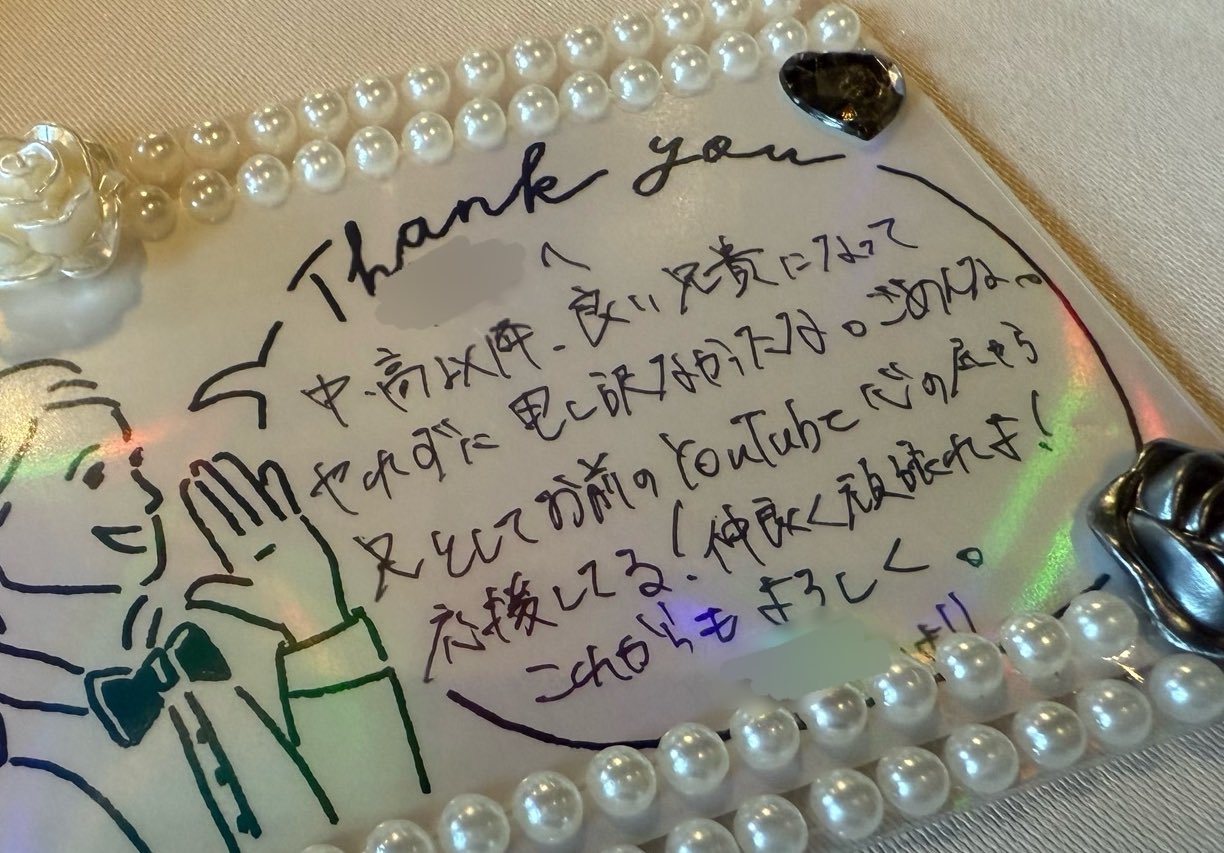 Thank you
へ
中、高以降、良い兄貴になって
やれずに申し訳なかったな。ごめんな。
兄としてお前のYouTubeを心の底から
応援してる!仲良く頑張れよ!
これからもよろしく。
より